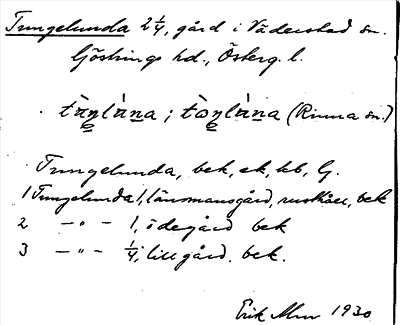 Tungelunda 2 1/4, gård i Väderstad sn.
Göstrings hd., Österg. l.
tàŋlúna; tòŋlúna (Rinna sn.)
Tungelunda, bek, ek, kb, G.
1 Tungelunda 1, länsmansgård, rusthåll, bek
2 —"— 1, ödegård bek
3 —"— 1/4, lillgård, bek.
Erik Alm 1930